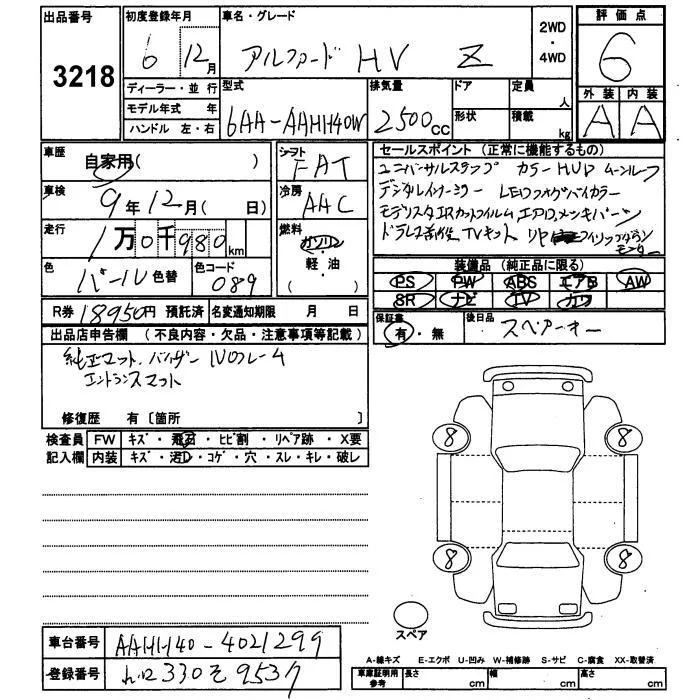 出品番号 3218
初度登録年月 6 12月
車名・グレード アルファード HV Z
2WD・4WD
評価点 6
外装 A 内装 A
ディーラー・並行
モデル年式 年
ハンドル 左・右
型式 6AA-AAHH40W
排気量 2500cc
ドア
形状
定員 人
積載 kg
車歴 自家用( )
車検 9年12月( 日)
走行 1万0千980km
色 パール 色替 色コード 089
シフト FAT
冷房 AAC
燃料 ガソリン・軽・油
セールスポイント (正常に機能するもの)
ユニバーサルステップ カラーHUD ムーンルーフ
デジタルインナーミラー LEDフォグバイカラー
モデリスタ IRカットフィルム エアロ、メッキパーツ
ドラレコ前後 TVキット リヤ フィリップダウン
モニター
装備品 (純正品に限る)
PS PW ABS エアB AW
SR ナビ TV カワ
R券 18950円 預託済 名変通知期限 月 日
保証書 有・無 後日品 スペアーキー
出品店申告欄 (不良内容・欠品・注意事項等記載)
純正マット、バイザー Noフレーム
エントランスマット
修復歴 有 〔箇所 〕
検査員 FW キズ・飛石・ヒビ割・リペア跡・X要
記入欄 内装 キズ・汚レ・コゲ・穴・スレ・キレ・破レ
8 8
8 8
スペア
車台番号 AAHH40-4021299
登録番号 330 そ 9537
A-線キズ E-エクボ U-凹み W-補修跡 S-サビ C-腐食 XX-取替済
車庫証明用参考 長さ cm 幅 cm 高さ cm